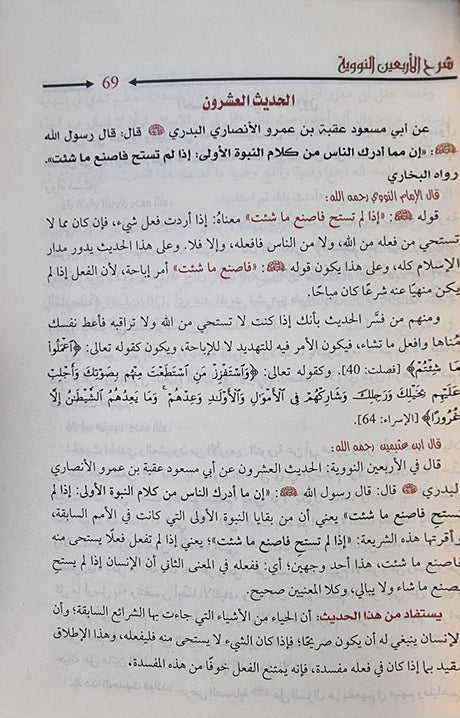 شرح الأربعين النووية
69
الحديث العشرون
عن أبي مسعود عقبة بن عمرو الأنصاري البدري ﵁ قال: قال رسول الله
ﷺ: «إن مما أدرك الناس من كلام النبوة الأولى: إذا لم تستح فاصنع ما شئت».
رواه البخاري
قال الإمام النووي رحمه الله:
قوله ﷺ: «إذا لم تستح فاصنع ما شئت» معناهُ: إذا أردت فعل شيء، فإن كان مما لا
تستحي من فعله من الله، ولا من الناس فافعله، وإلا فلا. وعلى هذا الحديث يدور مدار
الإسلام كله، وعلى هذا يكون قوله ﷺ: «فاصنع ما شئت» أمر إباحة، لأن الفعل إذا لم
يكن منهيًا عنه شرعًا كان مباحًا.
ومنهم من فسَّر الحديث بأنك إذا كنت لا تستحي من الله ولا تراقبه فأعط نفسك
مُناها وافعل ما تشاء، فيكون الأمر فيه للتهديد لا للإباحة، ويكون كقوله تعالى: ﴿ٱعْمَلُوا۟
مَا شِئْتُمْ﴾ [فصلت: 40]. وكقوله تعالى: ﴿وَٱسْتَفْزِزْ مَنِ ٱسْتَطَعْتَ مِنْهُم بِصَوْتِكَ وَأَجْلِبْ
عَلَيْهِم بِخَيْلِكَ وَرَجِلِكَ وَشَارِكْهُمْ فِى ٱلْأَمْوَٰلِ وَٱلْأَوْلَٰدِ وَعِدْهُمْ ۚ وَمَا يَعِدُهُمُ ٱلشَّيْطَٰنُ إِلَّا
غُرُورًا﴾ [الإسراء: 64].
قال ابن عثيمين رحمه الله:
قال في الأربعين النووية: الحديث العشرون عن أبي مسعود عقبة بن عمرو الأنصاري
البدري ﵁ قال: قال رسول الله ﷺ: «إن ما أدرك الناس من كلام النبوة الأولى: إذا لم
تستح فاصنع ما شئت» يعني أن من بقايا النبوة الأولى التي كانت في الأمم السابقة،
وأقرتها هذه الشريعة: «إذا لم تستح فاصنع ما شئت»؛ يعني إذا لم تفعل فعلًا يستحى منه
فاصنع ما شئت، هذا أحد وجهين؛ أي: ففعله في المعنى الثاني أن الإنسان إذا لم يستح
يصنع ما شاء ولا يبالي، وكلا المعنيين صحيح.
يستفاد من هذا الحديث: أن الحياء من الأشياء التي جاءت بها الشرائع السابقة؛ وأن
الإنسان ينبغي له أن يكون صريحًا؛ فإذا كان الشيء لا يستحى منه فليفعله، وهذا الإطلاق
مقيد بما إذا كان في فعله مفسدة، فإنه يمتنع الفعل خوفًا من هذه المفسدة.